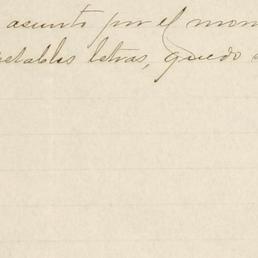 asunto por el mom
petables letras, quedo